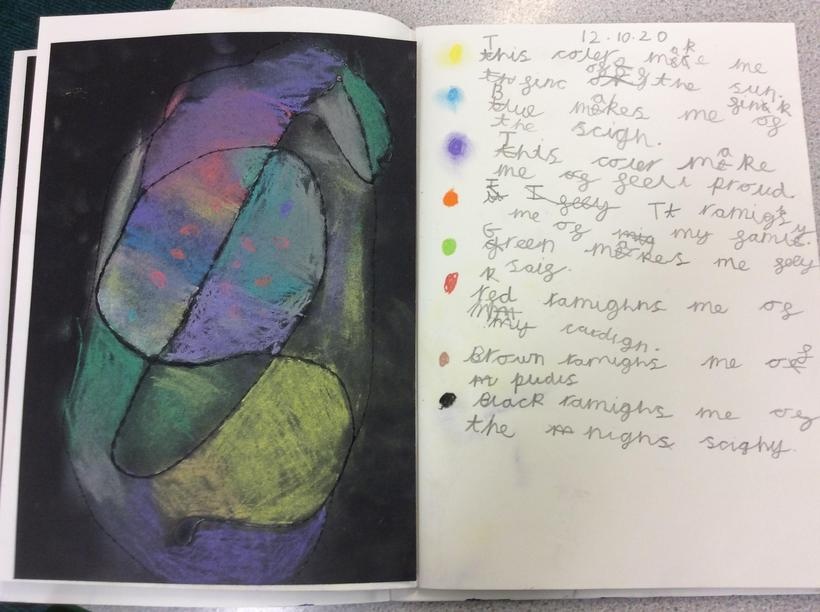 12.10.20
This coler make me
thinc of the sun.
Blue makes me sinck of
the scigh.
This coler make
me feel proud.
It ramigs
me of my famly.
Green makes me feey
saif.
Red ramighns me of
my cardign.
Brown ramighs me of
pudis
Black ramighs me of
the nighs scighy.